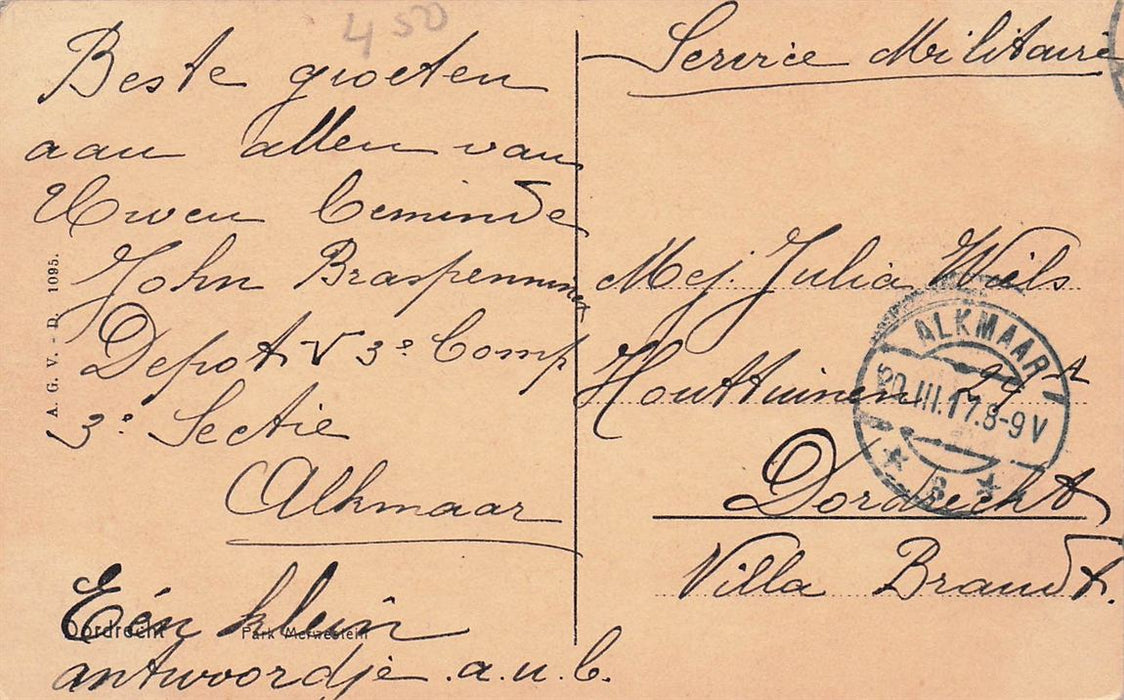 450
Beste groeten
aan allen van
Uwen beminde
John Braspenning
Depot V 3e Comp
3e Sectie
Alkmaar
Eén klein
antwoordje a.u.b.
Dordrecht Park Merwestein
A. G. V. - D. 1095.
Service Militaire
Mej. Julia Wils
Houttuinen
Dordrecht
Villa Brandt.
ALKMAAR
20.III.17.8-9V